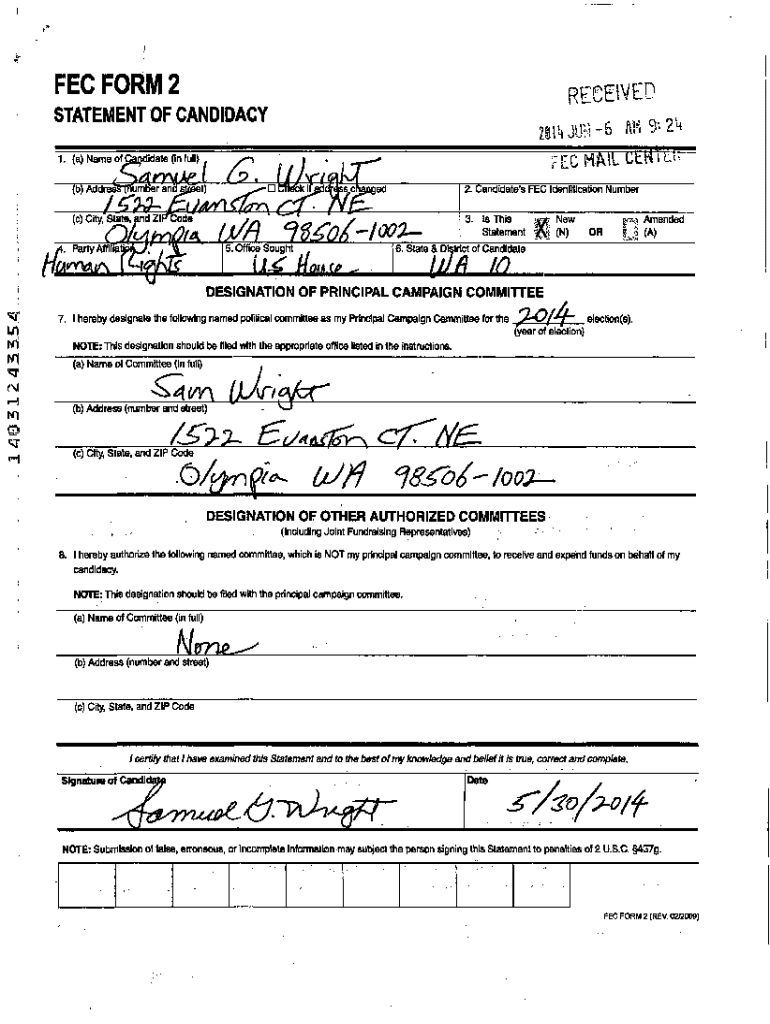 FEC FORM 2
STATEMENT OF CANDIDACY
RECEIVED
2014 JUN -6 AM 9:24
FEC MAIL CENTER
1. (a) Name of Candidate (in full)
Samuel G. Wright
(b) Address (number and street) ☐ Check if address changed
1522 Evanston CT. NE
2. Candidate's FEC Identification Number
(c) City, State, and ZIP Code
Olympia WA 98506-1002
3. Is This Statement X New (N) OR Amended (A)
4. Party Affiliation
Human Rights
5. Office Sought
U.S House
6. State & District of Candidate
WA 10
DESIGNATION OF PRINCIPAL CAMPAIGN COMMITTEE
7. I hereby designate the following named political committee as my Principal Campaign Committee for the 2014 election(s).
(year of election)
NOTE: This designation should be filed with the appropriate office listed in the instructions.
(a) Name of Committee (in full)
Sam Wright
(b) Address (number and street)
1522 Evanston CT. NE
(c) City, State, and ZIP Code
Olympia WA 98506-1002
DESIGNATION OF OTHER AUTHORIZED COMMITTEES
(Including Joint Fundraising Representatives)
8. I hereby authorize the following named committee, which is NOT my principal campaign committee, to receive and expend funds on behalf of my
candidacy.
NOTE: This designation should be filed with the principal campaign committee.
(a) Name of Committee (in full)
None
(b) Address (number and street)
(c) City, State, and ZIP Code
I certify that I have examined this Statement and to the best of my knowledge and belief it is true, correct and complete.
Signature of Candidate
Samuel G. Wright
Date
5/30/2014
NOTE: Submission of false, erroneous, or incomplete information may subject the person signing this Statement to penalties of 2 U.S.C. §437g.
FEC FORM 2 (REV. 02/2009)
14031243354